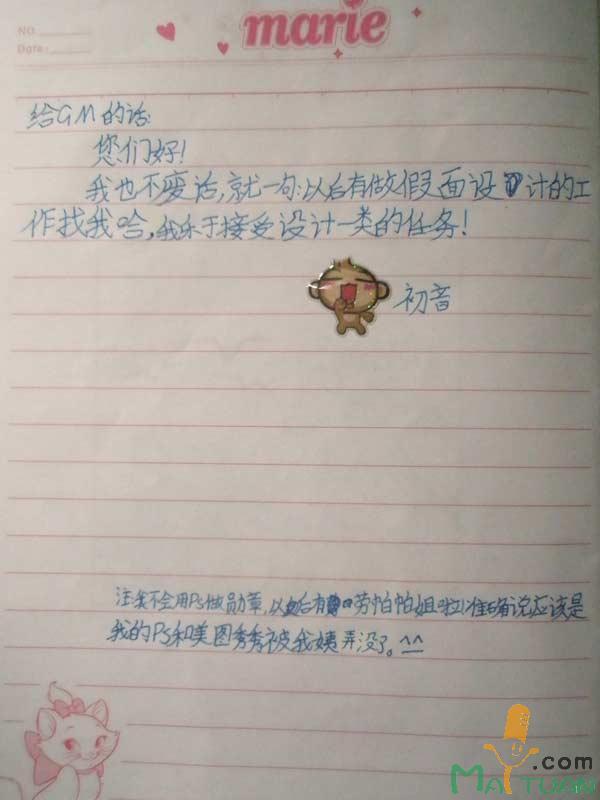 NO.
Date:
marie
给GM的话:
您们好!
我也不废话,就一句:以后有做假面设计的工
作找我哈,我乐于接受设计一类的任务!
初音
注:我不会用Ps做勋章,以后有劳帕帕姐啦!准确说应该是
我的PS和美图秀秀被我姨弄没了。^^
.com
MAITUAN